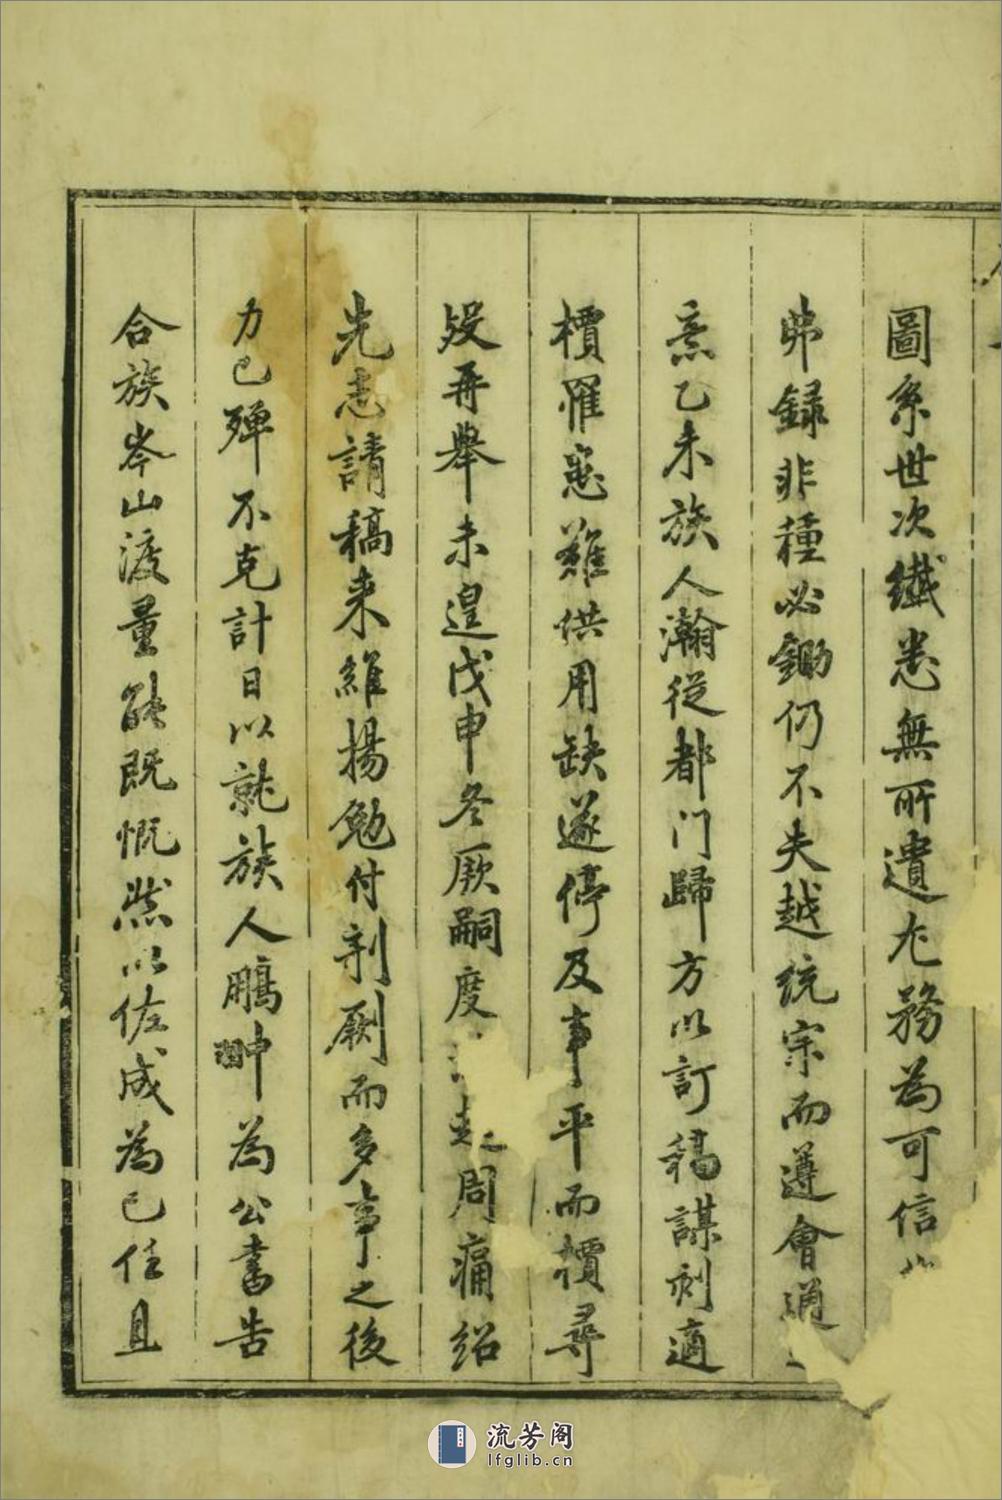 圖系世次纖悉無所遺尤務為可信
弗錄非種必鋤仍不失越統宗而遵會通
意乙未族人瀚從都門歸方以訂稿謀剞適
櫝罹寇難供用缺遂停及事平而櫝尋
歿再舉未遑戊申冬厥嗣度起周痛紹
先志請稿来維揚勉付剞劂而多事之後
力已殫不克計日以就族人鵬翀為公書告
合族岑山渡量能既慨然以佐成為己任且
流芳阁
lfglib.cn